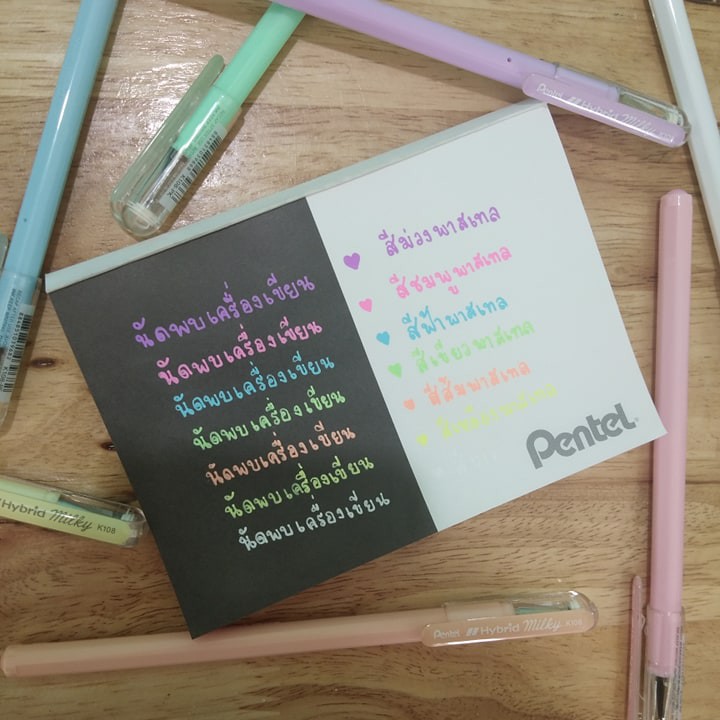 Pentel Hybrid Milky K108
นัดพบเครื่องเขียน
นัดพบเครื่องเขียน
นัดพบเครื่องเขียน
นัดพบเครื่องเขียน
นัดพบเครื่องเขียน
นัดพบเครื่องเขียน
นัดพบเครื่องเขียน
สีม่วงพาสเทล
สีชมพูพาสเทล
สีฟ้าพาสเทล
สีเขียวพาสเทล
สีส้มพาสเทล
สีเหลืองพาสเทล
Pentel
Hybrid Milky K108
Pentel Hybrid Milky K108